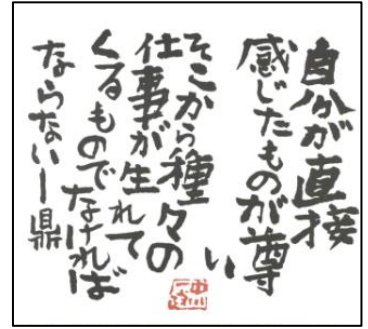 自分が直接
感じたものが尊い
そこから種々の
仕事が生れて
くるものでなければ
ならないー鼎